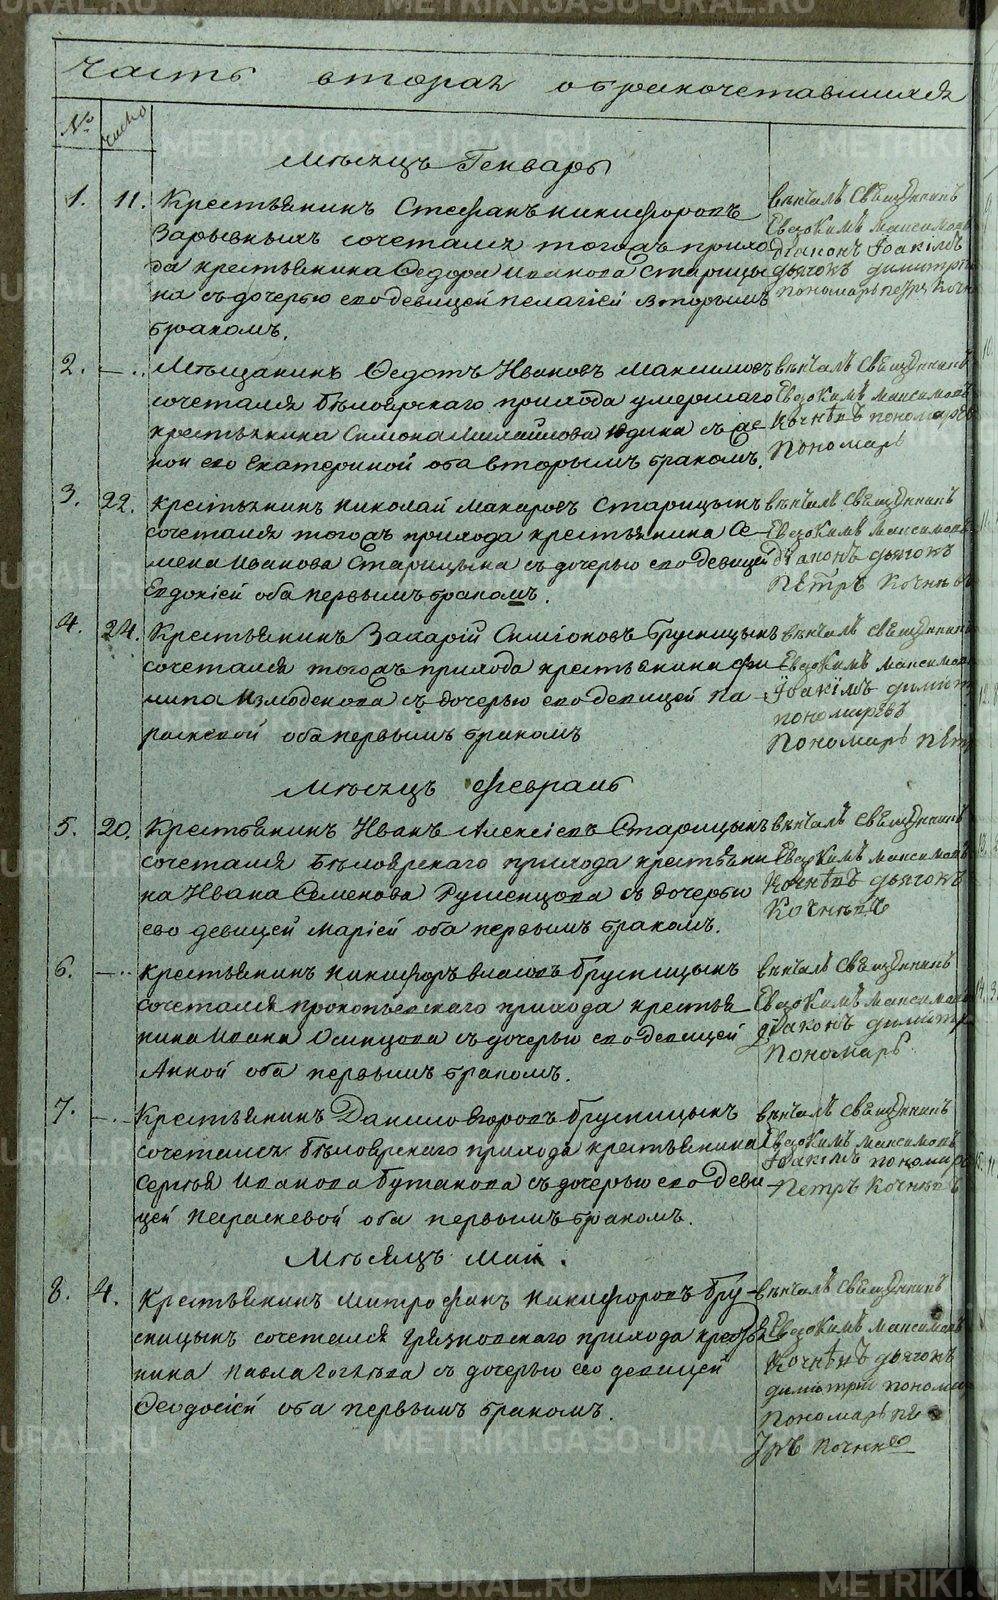 часть вторая о бракочетавшихся
№ число
Месяцъ Генварь
1. 11. Крестьянинъ Стефанъ Никифоровъ
Зарывныхъ сочетался тогожъ прихо
да крестьянина Федора Иванова Старицы
на съ дочерью его девицей Пелагіей вторымъ
бракомъ.
венчалъ священникъ
Евдокимъ Максимовъ
діаконъ Іоакімъ
дьячокъ Димитрі
пономарь Петръ Кочн
2. — Мѣщанинъ Федотъ Ивановъ Максимовъ
сочетался Бѣлоярскаго прихода умершаго
крестьянина Симона Михайлова Юдина съ же
ной его Екатериной оба вторымъ бракомъ.
вѣнчалъ священникъ
Евдокимъ Максимовъ
Кочнѣвъ пономаревъ
Пономарь
3. 22. Крестьянинъ Николай Макаровъ Старицынъ
сочетался тогожъ прихода крестьянина Се
мена Иванова Старицына съ дочерью его девицей
Евдокіей оба первымъ бракомъ.
вѣнчалъ священникъ
Евдокимъ Максимовъ
діаконъ дьячокъ
Петръ Кочневъ
4. 24. Крестьянинъ Захарій Симіоновъ Брусницынъ
сочетался тогожъ прихода крестьянина Фи
липа Измоденова съ дочерью его девицей Па
раскевой оба первымъ бракомъ
вѣнчалъ священникъ
Евдокимъ Максимов
Іоакімъ Димит
пономаревъ
Пономарь Пет
Месяцъ февраль
5. 20. Крестьянинъ Иванъ Алексіевъ Старицынъ
сочетался Бѣлоярскаго прихода крестьяни
на Ивана Семенова Румянцова съ дочерью
ево девицей Маріей оба первымъ бракомъ.
вѣнчалъ священникъ
Евдокимъ Максимовъ
Кочнѣвъ дьячокъ
Кочневъ
6. — Крестьянинъ Никифоръ Власовъ Брусницынъ
сочетался Прокопьевскаго прихода крестья
нина Ивана Осинцова съ дочерью его девицей
Анной оба первымъ бракомъ.
вѣнчалъ священникъ
Евдокимъ Максимовъ
діаконъ Димитр
Пономарь
7. — Крестьянинъ Данило Егоровъ Брусницынъ
сочетался Бѣлоярскаго прихода крестьянина
Сергѣя Иванова Бутакова съ дочерью его деви
цей Параскевой оба первымъ бракомъ.
вѣнчалъ священникъ
Евдокимъ Максимовъ
Іоакімъ пономарев
Петръ Кочневъ
Месяцъ Май.
8. 4. Крестьянинъ Митрофанъ Никифоровъ Бру-
сницынъ сочетался Грязновскаго прихода крестья
нина Павла съ дочерью его девицей
Феодосіей оба первымъ бракомъ.
вѣнчалъ священникъ
Евдокимъ Максимовъ
Кочнѣвъ дьячокъ
димитрій понома
Пономарь Пе
тръ Кочнев
METRIKI.GASO-URAL.RU